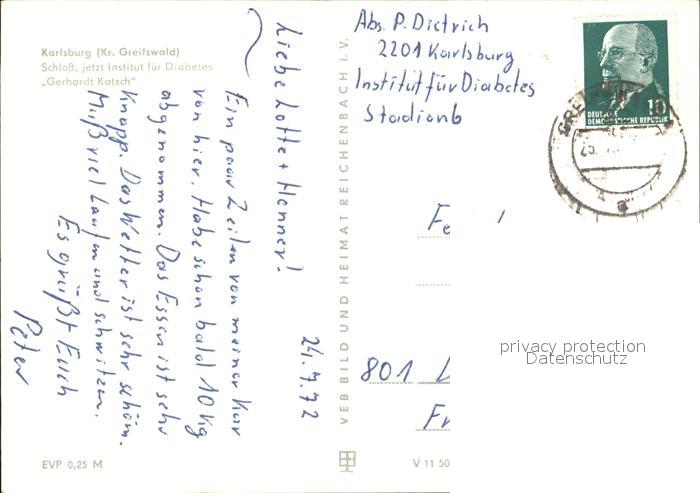 Karlsburg (Kr. Greifswald)
Schloß, jetzt Institut für Diabetes
„Gerhardt Katsch"
24.7.72
Liebe Lotte + Henner!
Ein paar Zeilen von meiner Kur
von hier. Habe schon bald 10 kg
abgenommen. Das Essen ist sehr
knapp. Das Wetter ist sehr schön.
Muß viel Laufen und schwitzen.
Es grüßt Euch
Peter
EVP 0,25 M
VEB BILD UND HEIMAT REICHENBACH I. V.
V 11 50
Abs. P. Dietrich
2201 Karlsburg
Institut für Diabetes
Station 6
10
DEUTSCHE
DEMOKRATISCHE REPUBLIK
801
privacy protection
Datenschutz